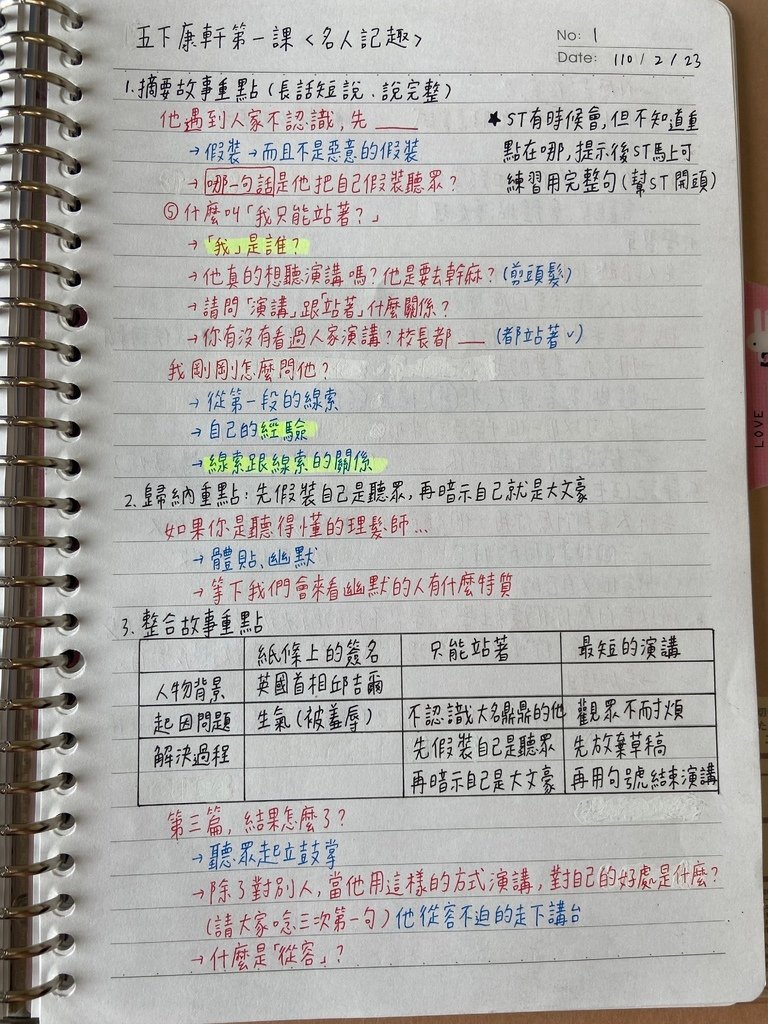 五下康軒第一課<名人記趣>
No: 1
Date: 110 / 2 / 23
1.摘要故事重點(長話短說、說完整)
他遇到人家不認識,先____
→假裝→而且不是惡意的假裝
→哪一句話是他把自己假裝聽眾?
★ST有時候會,但不知道重
點在哪,提示後ST馬上可
練習用完整句(幫ST開頭)
⑤什麼叫「我只能站著?」
→「我」是誰?
→他真的想聽演講嗎?他是要去幹麻?(剪頭髮)
→請問「演講」跟「站著」什麼關係?
→你有沒有看過人家演講?校長都__(都站著✓)
我剛剛怎麼問他?
→從第一段的線索
→自己的經驗
→線索跟線索的關係
2.歸納重點:先假裝自己是聽眾,再暗示自己就是大文豪
如果你是聽得懂的理髮師...
→體貼、幽默
→等下我們會來看幽默的人有什麼特質
3.整合故事重點
紙條上的簽名 只能站著 最短的演講
人物背景 英國首相邱吉爾
起因問題 生氣(被羞辱) 不認識大名鼎鼎的他 觀眾不耐煩
解決過程 先假裝自己是聽眾 先放棄草稿
再暗示自己是大文豪 再用句號結束演講
第三篇,結果怎麼了?
→聽眾起立鼓掌
→除了對別人,當他用這樣的方式演講,對自己的好處是什麼?
(請大家唸三次第一句)他從容不迫的走下講台
→什麼是「從容」?
LOVE